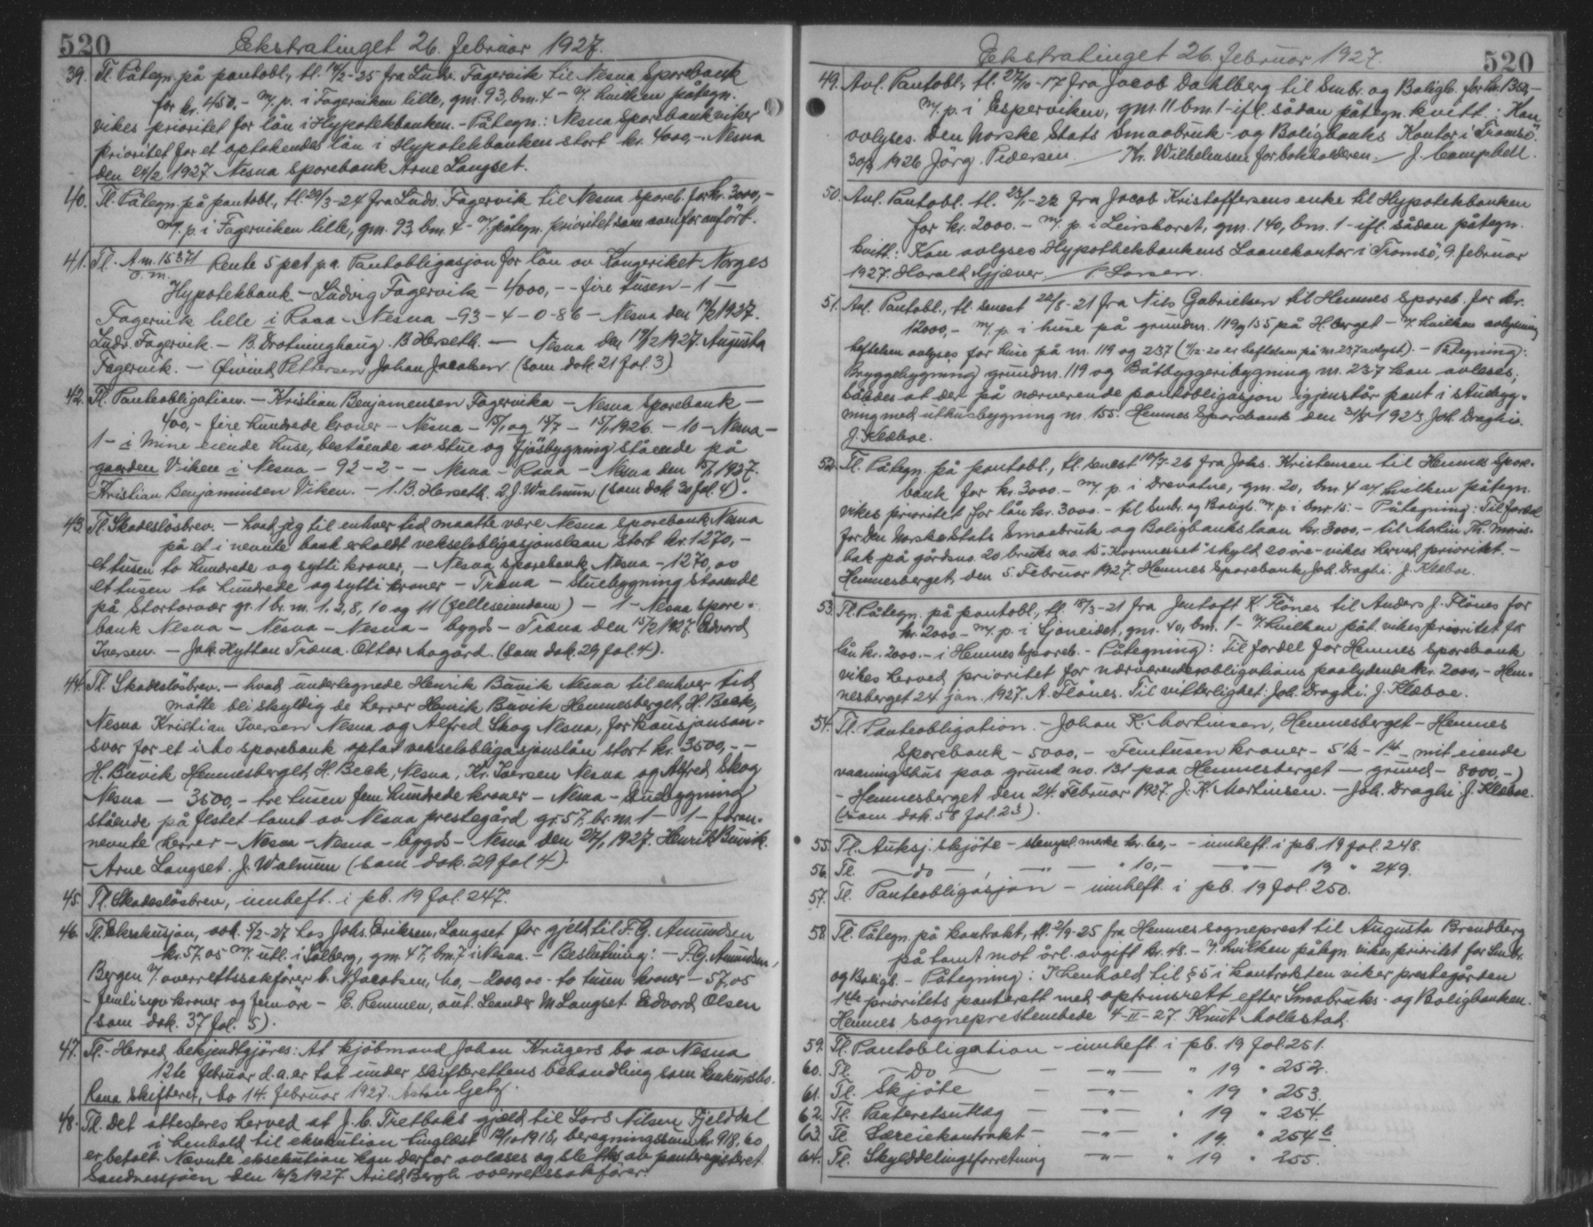 520 Ekstratinget 26. februar 1927.
39. Tl. Påtegn. på pantobl., tl. 14/2-25 fra Ludv. Fagervik til Nesna Sparebank
for kr. 450,- m. p. i Fagerviken lille, gm. 93, bm. 4 - hvilken påtegn.
vikes prioritet for lån i Hypotekbanken. - Påtegn.: Nesna Sparebank viker
prioritet for et optakendes lån i Hypotekbanken stort kr. 4000,- Nesna
den 21/2 1927 Nesna Sparebank Arne Langset.
40. Tl. Påtegn. på pantobl., tl. 29/3-24 fra Ludv. Fagervik til Nesna Spareb. for kr. 3000,-
m. p. i Fagerviken lille, gm. 93, bm. 4 - påtegn. prioritet som ovenfor anført.
41. Tl. A.m. 15371 Rente 5 pct p.a. Pantobligasjon for lån av Kongeriket Norges
Hypotekbank - Ludvig Fagervik - 4000,- - fire tusen - 1 -
Fagervik lille i Rana - Nesna - 93 - 4 - 0 - 86 - Nesna den 12/2 1927.
Ludv. Fagervik. - B. Herseth. - Nesna den 12/2 1927. Augusta
Fagervik. - Øivind Pettersen Johan Jacobsen (som dok. 21 fol. 3)
42. Tl. Panteobligation. - Kristian Benjamensen Fagervika - Nesna Sparebank -
400,- fire hundrede kroner - Nesna - 15/1 og 15/7 - 15/7 1926. - 10 - Nesna -
1 - i mine eiende huse, bestående av stue og fjøsbygning stående på
gaarden Viken i Nesna - 92 - 2 - - Nesna - Rana - Nesna den 15/1 1927.
Kristian Benjaminsen Viken. - 1. B. Herseth. 2 J. Walnum (som dok 30 fol. 4).
43. Tl. Skadesløsbrev. - hvad jeg til enhver tid maatte være Nesna Sparebank Nesna
på et i nevnte bank erholdt vekselobligasjonslaan stort kr. 1270,-
et tusen to hundrede og sytti kroner, - Nesna Sparebank Nesna - 1270, av
et tusen to hundrede og sytti kroner - Træna - Stuebygning staaende
på Stortorvær gr. 1 br. m. 1, 2, 8, 10 og 11 (felleseiendom) - 1 - Nesna Spare-
bank Nesna - Nesna - Nesna - bygds - Træna den 15/2 1927. Edvard
Iversen. - Joh. Hyttan Træna. Ottar Aagård. (som dok. 29 fol. 4).
44. Tl. Skadesløsbrev. - hvad underlegnede Henrik Buvik Nesna til enhver tid
måtte bli skyldig de herrer Henrik Buvik Hemnesberget, H. Beck,
Nesna Kristian Iversen Nesna og Alfred Skog Nesna, for kausjonsan-
svar for et i Mo sparebank optat vekselobligasjonslån stort kr. 3500,- -
H. Buvik Hemnesberget, H. Beck, Nesna, Kr. Iversen Nesna og Alfred Skog
Nesna - 3500,- tre tusen fem hundrede kroner - Nesna - Stuebygning
stående på festet tomt av Nesna prestegård gr. 57, br. m. 1 - 1 - foran-
nevnte herrer - Nesna - Nesna - bygds - Nesna den 27/1 1927. Henrik Buvik.
- Arne Langset. J. Walnum (som dok. 29 fol 4)
45. Tl. Skadesløsbrev, innheft. i pb. 19 fol. 247.
46. Tl. Eksekusjon, avh. 5/2-27 hos Johs. Eriksen, Langset for gjeld til F. G. Amundsen
kr. 57,05 m. utl. i Solberg, gm. 47, bm. 7 i Nesna. - Beslutning: - F. G. Amundsen,
Bergen overrettssakfører b. Jacobsen, Mo, - 2000,00 - to tusen kroner - 57,05
- femti syv kroner og fem øre - E. Remmen, aut. Leander M. Langset Edvard Olsen
(som dok. 37 fol. 5).
47. Tl. - Herved bekjendtgjøres: At kjøbmand Johan Krügers bo av Nesna
12te februar d.a. er tat under skifterettens behandling som konkursbo.
Rana skifterett, Mo 14. februar 1927.
48. Tl. Det attesteres herved at J. C. Tretbaks gjeld til Lars Nilsen Fjelldal
i henhold til eksekution tinglæst 12/10 1916, beregningssum kr. 918,60
er betalt. Nævnte eksekution kan derfor avlæses og slettes av panteregisteret.
Sandnessjøen den 16/2 1927. Arild Bergh overrettssakfører.
Ekstratinget 26. februar 1927. 520
49. Avl. Pantobl., tl. 27/10-17 fra Jacob Dahlberg til Smbr. og Boligb. for kr. 1350,-
m. p. i Esperviken, gm. 11 bm. 1 - ifl. sådan påtegn. kvitt.: Kan
avlyses. Den Norske Stats Smaabruk- og Boligbanks Kontor i Tromsø
30/3 1926 Jörg. Pedersen / Th. Wilhelmsen for bokholderen. / J. Campbell.
50. Avl. Pantobl. tl. 25/1-22 fra Jacob Kristoffersens enke til Hypotekbanken
for kr. 2000.- m. p. i Leirskoret, gm. 140, bm. 1 - ifl. sådan påtegn.
kvitt.: Kan avlyses Hypothekbankens Laanekontor i Tromsø, 9. februar
1927. Harald Gjæver / P. Larsen.
51. Avl. Pantobl., tl. senest 22/8-21 fra Nils Gabrielsen til Hemnes Spareb. for kr.
12000,- m. p. i huse på grundm. 119 og 155 på H.berget - hvilken avlysning
heftelsen avlyses for huse på m. 119 og 237 (1/12-20 er heftelsen på m. 237 avlyst). - Påtegning:
Bryggebygning grundm. 119 og Båtbyggeribygning m. 237 kan avløses,
således at der på nærværende pantobligasjon igjenstår pant i stuebyg-
ning med uthusbygning m. 155. Hemnes Sparebank den 31/5 1923. Joh. Draghi.
J. Klæboe.
52. Tl. Påtegn. på pantobl., tl. senest 14/7-26 fra Johs. Kristensen til Hemnes Spare-
bank for kr. 3000.- m. p. i Drevatne, gm. 20, bm. 4 av hvilken påtegn.
vikes prioritet for lån kr. 3000.- til Smbr. og Boligb. m. p. i bnr 15. - Påtegning: Til fordel
for den Norske Stats Smaabruk og Boligbanks laan kr. 3000,- til Martin Th. Moris-
bak på gårdsno. 20 bruks no. 15 "Kornmoset" skyld 20 øre - vikes herved prioritet. -
Hemnesberget, den 5. Februar 1927. Hemnes Sparebank, Joh. Draghi. J. Klæboe.
53. Tl. Påtegn. på pantobl., tl. 15/3-21 fra Jentoft K. Flønes til Anders J. Flønes for
kr. 2000.- m. p. i Sjøneidet, gm. 40, bm. 1 - hvilken påt. vikes prioritet for
lån kr. 2000.- i Hemnes Spareb. - Påtegning: Til fordel for Hemnes Sparebank
vikes herved prioritet for nærværende obligations paalydende kr. 2000,- Hem-
nesberget 24 jan. 1927. A. Flønes. Til vitterlighet: Joh. Draghi. J. Klæboe.
54. Tl. Panteobligation. - Johan K. Mortinsen, Hemnesberget - Hemnes
Sparebank - 5000,- Femtusen kroner - 5½ - 1st - mit eiende
vaaningshus paa grund no. 131 paa Hemnesberget - grund - 8000,-)
- Hemnesberget den 24. Februar 1927. J. K. Mortinsen. - Joh. Draghi. J. Klæboe.
(som dok. 58 fol. 23).
55. Tl. Auksj. skjøte - stempl. merke kr. 60,- - innheft. i pb. 19 fol. 248.
56. Tl. do - " 10,- - " - 19 " 249.
57. Tl. Panteobligasjon - innheft. i pb. 19 fol. 250.
58. Tl. Påtegn. på kontrakt, tl. 2/9-25 fra Hemnes sogneprest til Augusta Brendberg
på tomt mot årl. avgift kr. 18. - hvilken påtegn. vikes prioritet for Smbr.
og Boligb. - Påtegning: I henhold til § 5 i kontrakten viker prestegården
1ste prioritets panterett med optrinsrett efter Småbruks- og Boligbanken.
Hemnes sogneprestembede 4-II-27. Knut Mollestad.
59. Tl. Pantobligation - innheft. i pb. 19 fol. 251.
60. Tl. Do - " - " 19 " 252.
61. Tl. Skjøte - " - " 19 " 253.
62. Tl. Panteretsutlæg - " - " 19 " 254
63. Tl. Særeiekontrakt - " - " 19. " 254b.
64. Tl. Skylddelingsforretning - " - " 19 " 255.